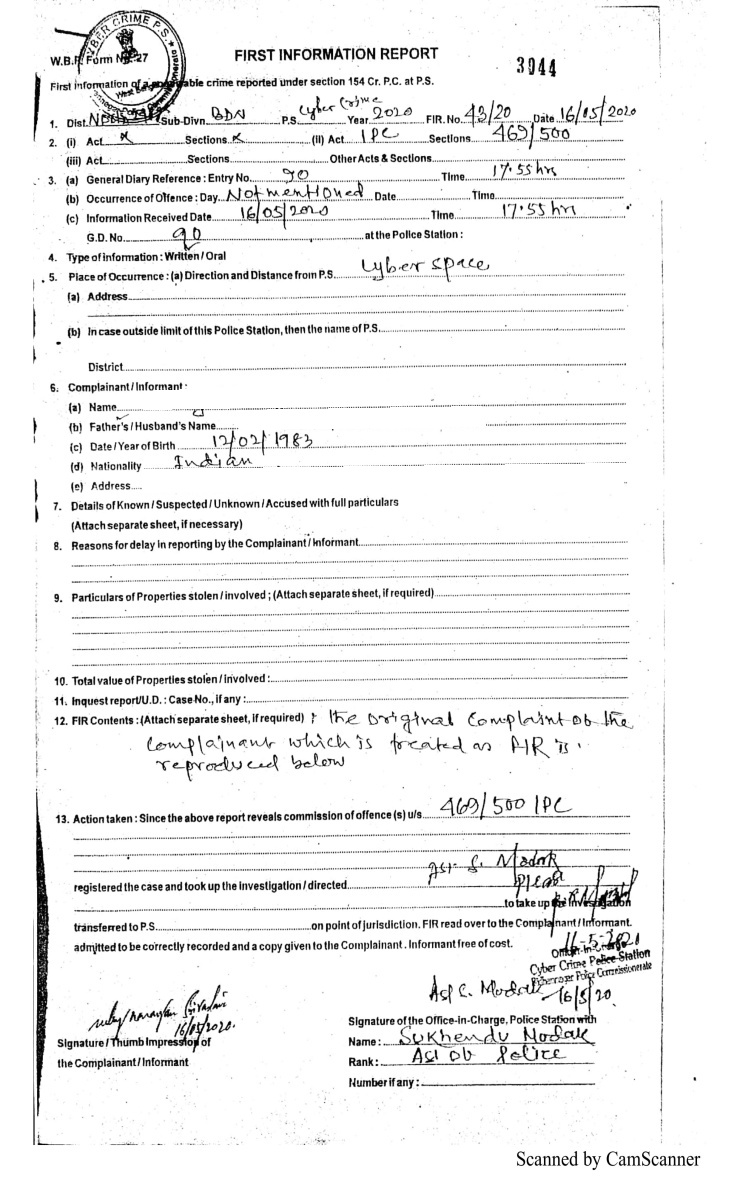 CYBER CRIME P.S.
West Bengal
W.B.P. Form No. 27
FIRST INFORMATION REPORT
3944
First Information of a cognizable crime reported under section 154 Cr. P.C. at P.S.
1. Dist. Sub-Divn. BDN P.S. Cyber Crime Year 2020 FIR. No. 43/20 Date 16/05/2020
2. (i) Act x Sections x (ii) Act IPC Sections 469/500
(iii) Act Sections Other Acts & Sections
3. (a) General Diary Reference : Entry No. 90 Time 17.55 hrs
(b) Occurrence of Offence : Day Not mentioned Date Time
(c) Information Received Date 16/05/2020 Time 17.55 hrs
G.D. No. 90 at the Police Station :
4. Type of information : Written / Oral
5. Place of Occurrence : (a) Direction and Distance from P.S. Cyber space
(a) Address
(b) In case outside limit of this Police Station, then the name of P.S.
District
6. Complainant / Informant :
(a) Name
(b) Father's / Husband's Name
(c) Date / Year of Birth 12/02/1983
(d) Nationality Indian
(e) Address
7. Details of Known / Suspected / Unknown / Accused with full particulars
(Attach separate sheet, if necessary)
8. Reasons for delay in reporting by the Complainant / Informant
9. Particulars of Properties stolen / involved ; (Attach separate sheet, if required)
10. Total value of Properties stolen / involved :
11. Inquest report / U.D. : Case No., if any :
12. FIR Contents : (Attach separate sheet, if required) : The original complaint of the
complainant which is treated as FIR is
reproduced below
13. Action taken : Since the above report reveals commission of offence (s) u/s 469/500 IPC
ASI S. Modak
registered the case and took up the investigation / directed
to take up the investigation
transferred to P.S. on point of jurisdiction. FIR read over to the Complainant / Informant.
admitted to be correctly recorded and a copy given to the Complainant. Informant free of cost.
16-5-2020
Officer-in-Charge
Cyber Crime Police Station
Bidhannagar Police Commissionerate
ASI S. Modak 16/5/20
16/05/2020.
Signature / Thumb Impression of
the Complainant / Informant
Signature of the Office-in-Charge, Police Station with
Name : Sukhendu Modak
Rank : ASI of Police
Number if any :
Scanned by CamScanner